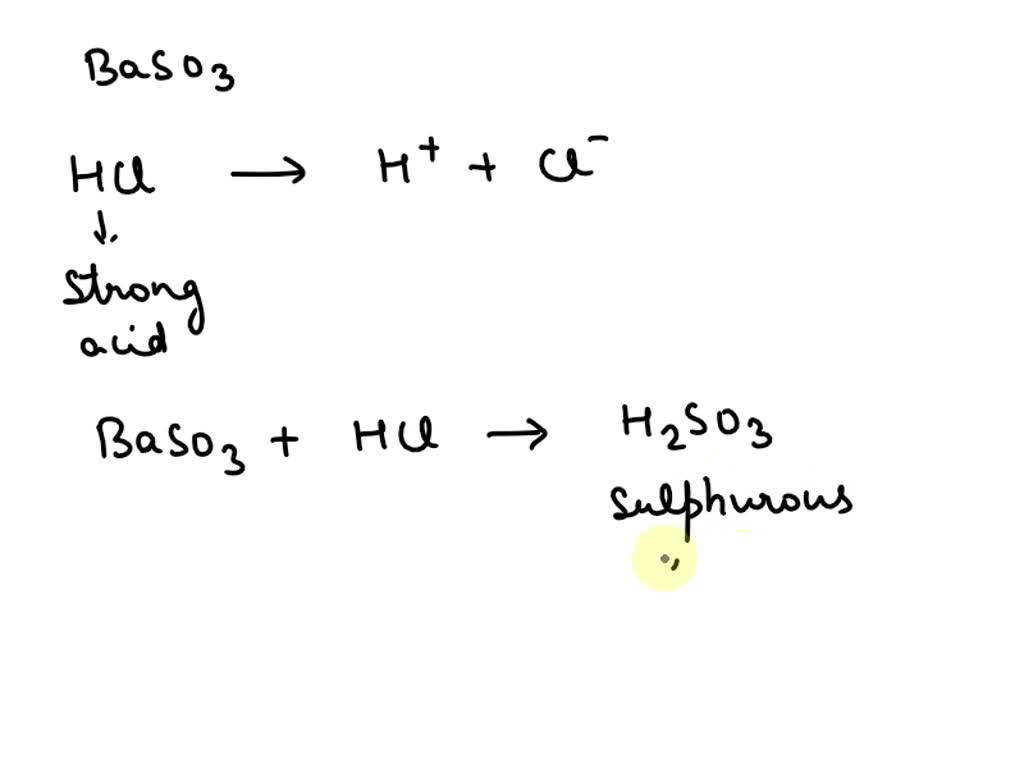 BaSO₃
HCl → H⁺ + Cl⁻
↓
strong
acid
BaSO₃ + HCl → H₂SO₃
sulphurous